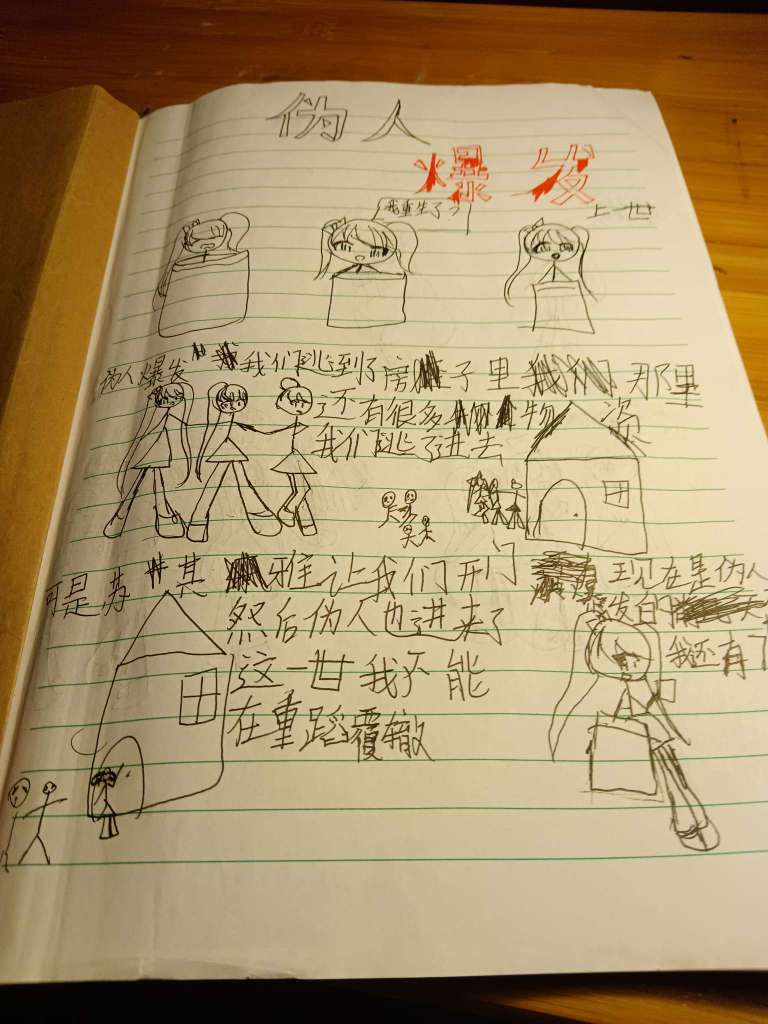 伪人
爆发
我重生了?
上一世
伪人爆发 我们逃到了房子里 那里
还有很多 物资
我们逃了进去
可是苏 其 雅让我们开门
然后伪人也进来了
这一世我不能
在重蹈覆辙
现在是伪人
爆发的 天
我还有了